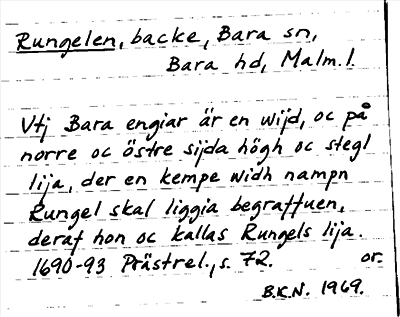 Rungelen, backe, Bara sn,
Bara hd, Malm. l.
Vtj Bara engiar är en wijd, oc på
norre oc östre sijda högh oc stegl
lija, der en kempe widh nampn
Rungel skal liggia begraffuen,
deraf hon oc kallas Rungels lija.
1690-93 Prästrel., s. 72. or.
B.K.N. 1969.